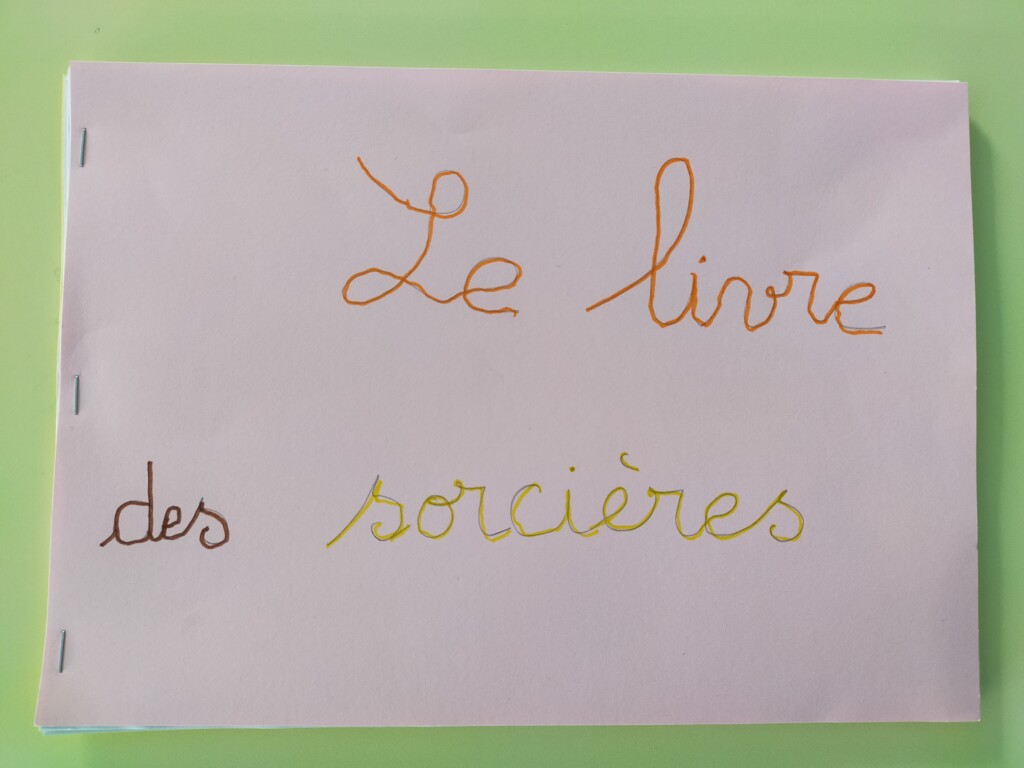 Le livre
des sorcières